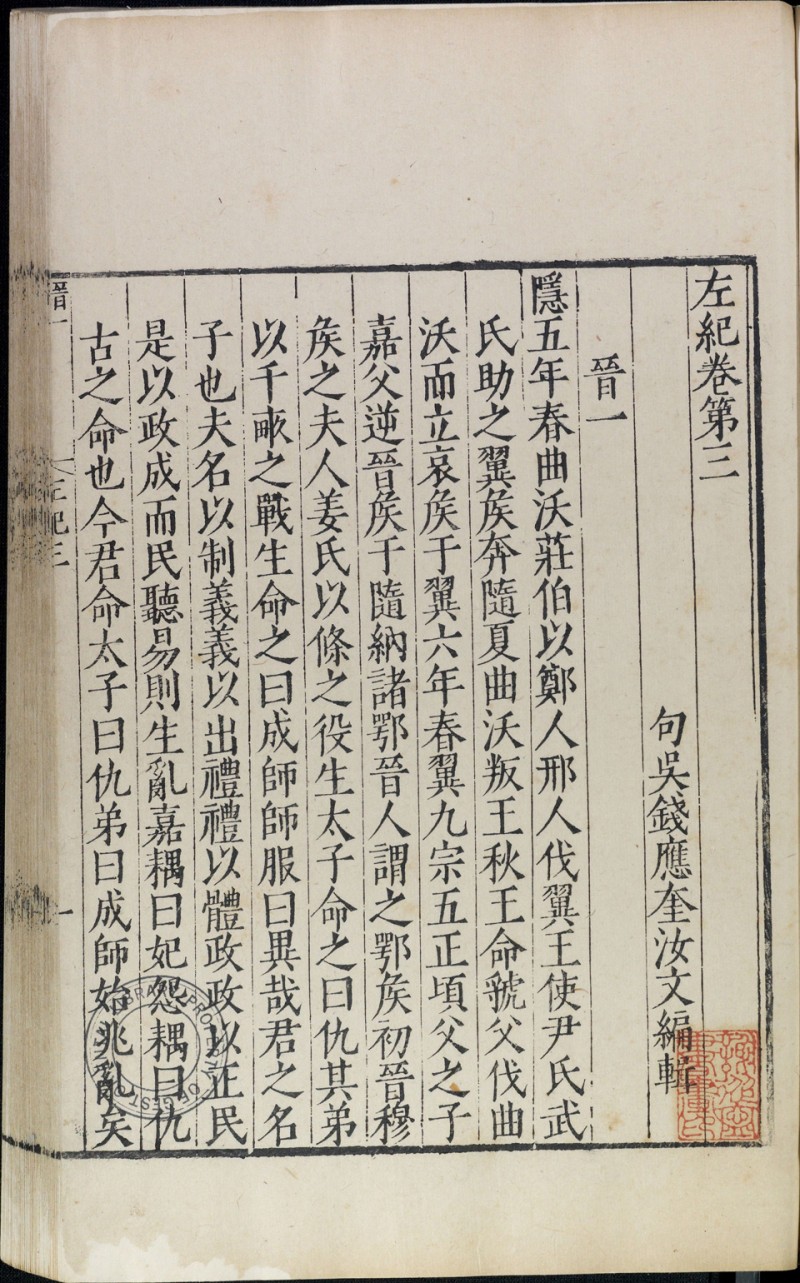 左紀卷第三
句吳錢應奎汝文編輯
晉一
隱五年春曲沃莊伯以鄭人邢人伐翼王使尹氏武
氏助之翼矦奔隨夏曲沃叛王秋王命虢父伐曲
沃而立哀矦于翼六年春翼九宗五正頃父之子
嘉父逆晉矦于隨納諸鄂晉人謂之鄂矦初晉穆
矦之夫人姜氏以條之役生太子命之曰仇其弟
以千畝之戰生命之曰成師師服曰異哉君之名
子也夫名以制義義以出禮禮以體政政以正民
是以政成而民聽易則生亂嘉耦曰妃怨耦曰仇
古之命也今君命太子曰仇弟曰成師始兆亂矣
晉一
左紀三
一